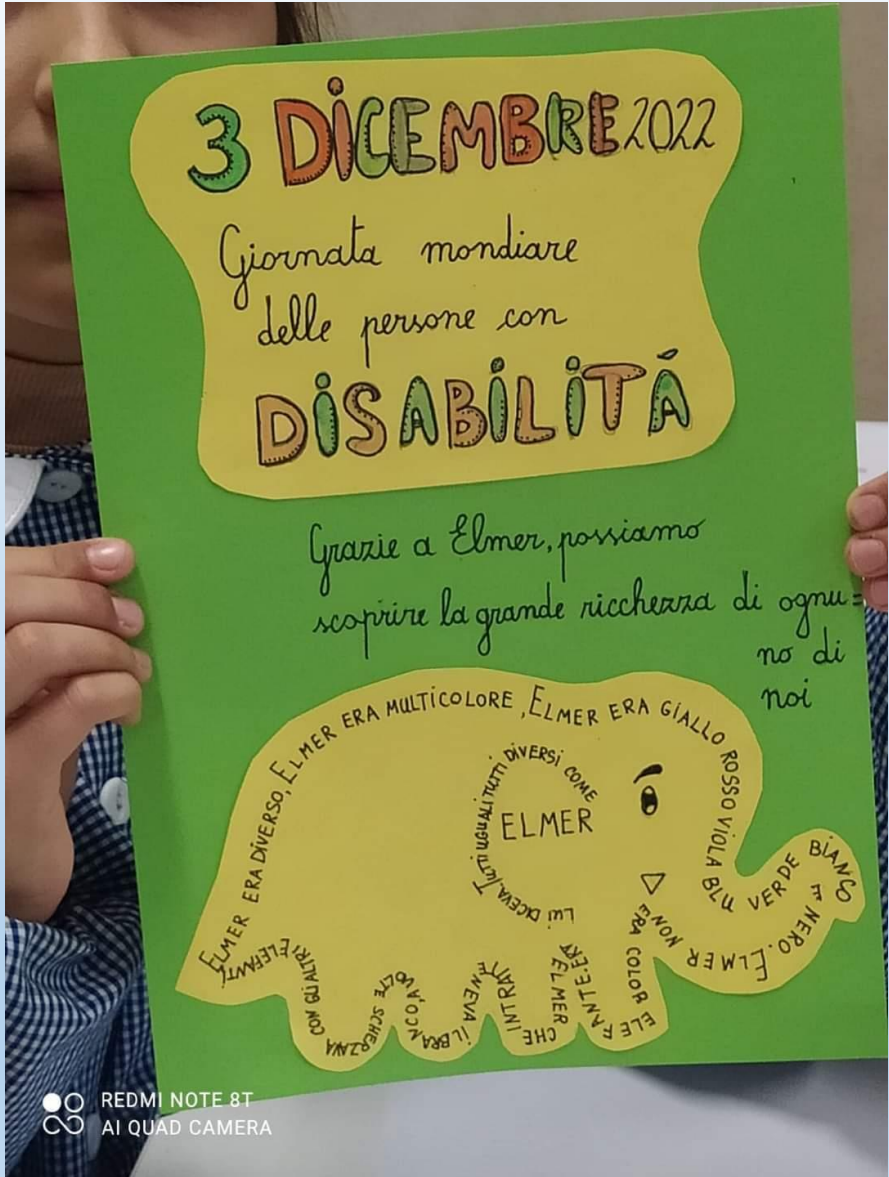 3 DiCEMBRE 2022
Giornata mondiare
delle persone con
DiSABiLiTÁ
Grazie a Elmer, possiamo
scoprire la grande ricchezza di ognu=
no di
noi
ELMER ERA DIVERSO, ELMER ERA MULTICOLORE, ELMER ERA GIALLO ROSSO VIOLA BLU VERDE BIANCO E NERO. ELMER NON ERA COLOR ELEFANTE. ERA ELMER CHE INTRATTENEVA IL BRANCO, A VOLTE SCHERZAVA CON GLI ALTRI ELEFANTI
LUI DICEVA, TUTTI UGUALI TUTTI DIVERSI COME
ELMER
REDMI NOTE 8T
AI QUAD CAMERA